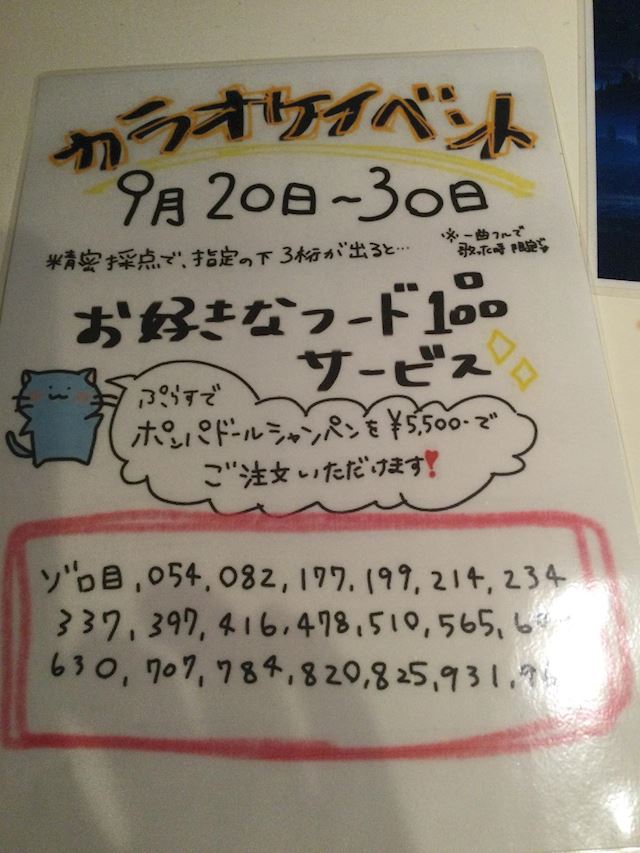 カラオケイベント
9月20日~30日
精密採点で、指定の下3桁が出ると…
※一曲フルで
歌った時限定で
お好きなフード1品
サービス
ぷらすで
ポンパドールシャンペンを¥5,500-で
ご注文いただけます!
ゾロ目, 054, 082, 177, 199, 214, 234
337, 397, 416, 478, 510, 565,
630, 707, 784, 820, 825, 931,